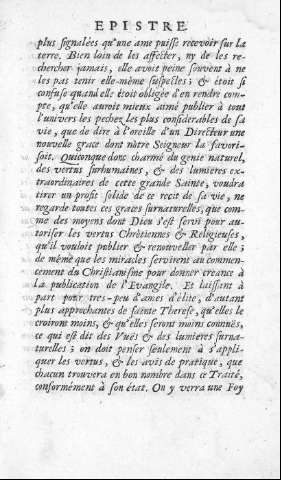 EPISTRE
plus signalées qu'une ame puisse recevoir sur la
terre. Bien loin de les affecter, ny de les re-
chercher jamais, elle avoit peine souvent à ne
les pas tenir elle-méme suspectes; & étoit si
confuse quand elle étoit obligée d'en rendre com-
pte, qu'elle auroit mieux aimé publier à tout
l'univers les pechez les plus considerables de sa
vie, que de dire à l'oreille d'un Directeur une
nouvelle grace dont nôtre Seigneur la favori-
soit. Quiconque donc charmé du genie naturel,
des vertus surhumaines, & des lumieres ex-
traordinaires de cette grande Sainte, voudra
tirer un profit solide de ce recit de sa vie, ne
regarde toutes ces graces surnaturelles, que com-
me des moyens dont Dieu s'est servi pour au-
toriser les vertus Chrétiennes & Religieuses,
qu'il vouloit publier & renouveller par elle;
de méme que les miracles servirent au commen-
cement du Christianisme pour donner creance à
la publication de l'Evangile. Et laissant à
part pour tres-peu d'ames d'élite, d'autant
plus approchantes de sainte Therese, qu'elles le
croiront moins, & qu'elles seront moins connuës,
ce qui est dit des Vuës & des lumieres surna-
turelles; on doit penser seulement à s'appli-
quer les vertus, & les avis de pratique, que
chacun trouvera en bon nombre dans ce Traité,
conformément à son état. On y verra une Foy